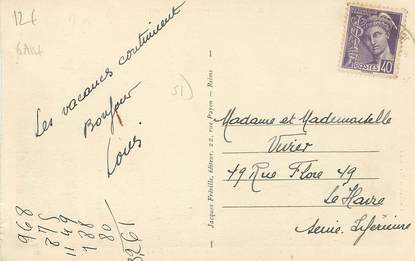 12€
51)
Les vacances continuent
Bonjour
Louis
968
875
1149
188
80
3261
Jacques Fréville, éditeur, 22, rue Payen - Reims
POSTES 40
Madame et Mademoiselle
Vivier
49 Rue Flore 49
Le Havre
Seine-Inférieure